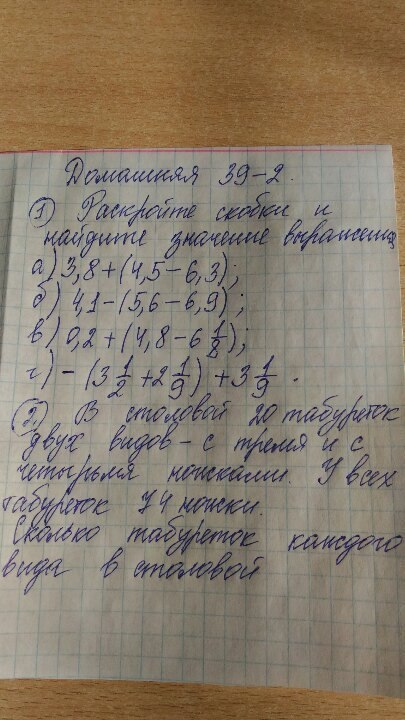 Домашняя 39-2.
1) Раскройте скобки и
найдите значение выражения
а) 3,8+(4,5-6,3);
б) 4,1-(5,6-6,9);
в) 0,2+(4,8-6 1/8);
г) -(3 1/2+2 1/9)+3 1/9.
2) В столовой 20 табуреток
двух видов - с тремя и с
четырьмя ножками. У всех
табуреток 74 ножки.
Сколько табуреток каждого
вида в столовой